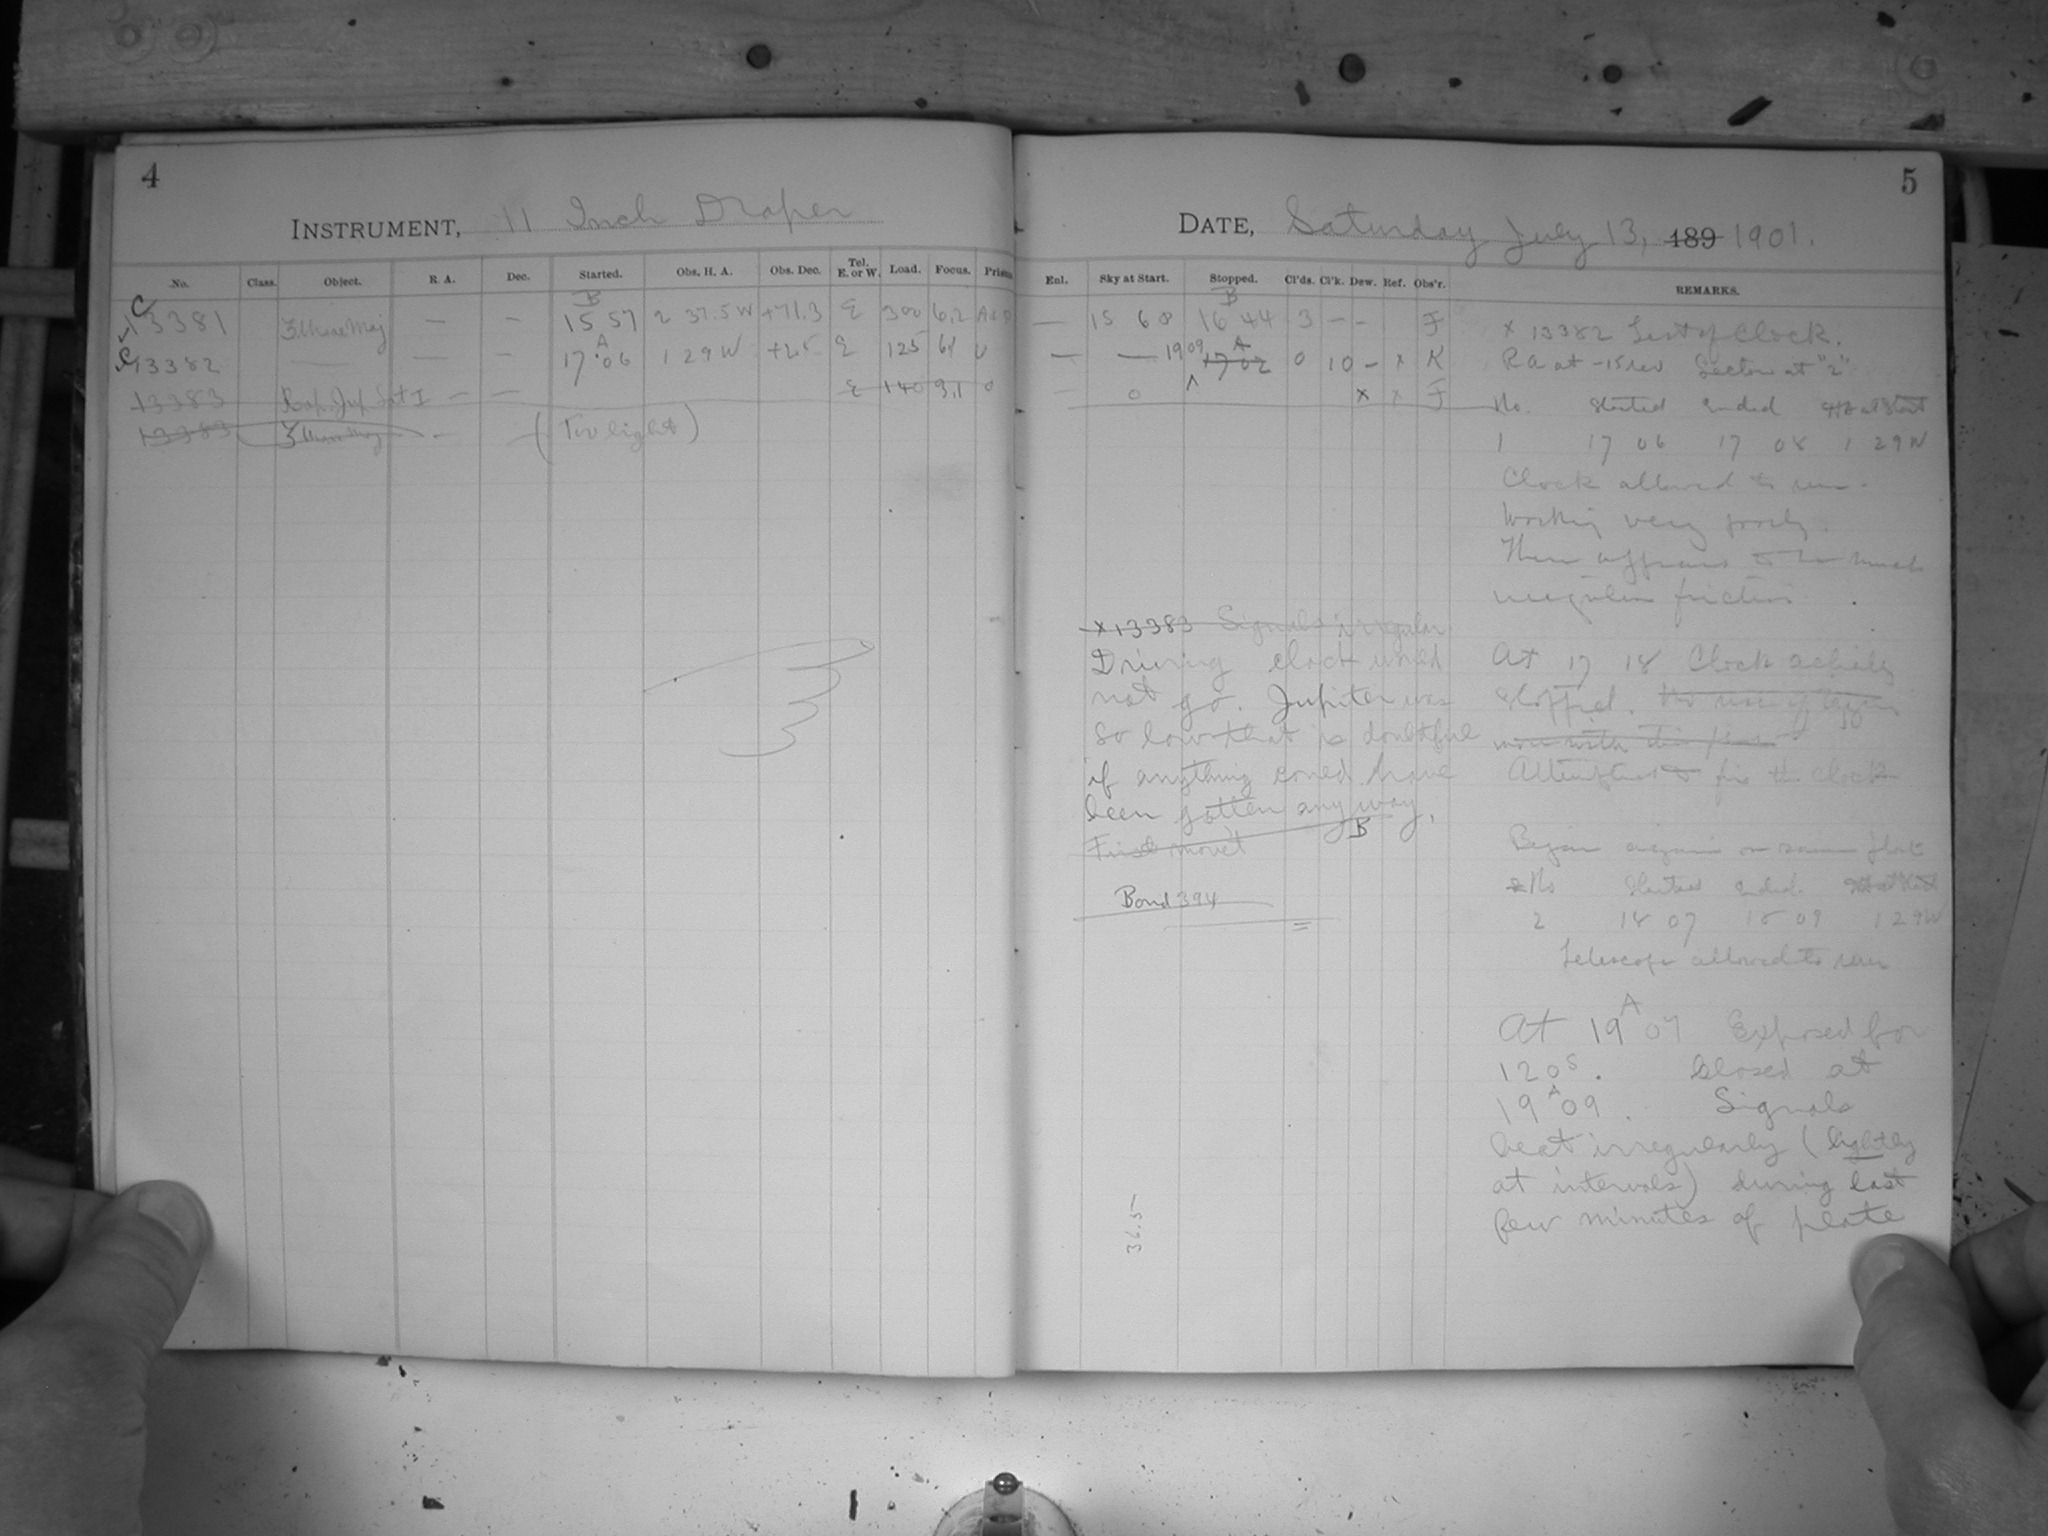 4
INSTRUMENT, 11 Inch Draper
No. Class. Object. R. A. Dec. Started. Obs. H. A. Obs. Dec. Tel. E. or W. Load. Focus. Prism
C B
13381 — — 15 57 2 37.5 W +71.3 E 300 6.2
C 13382 — — — 17 A 06 1 29 W +25 E 125 61 0
13383 Rap. Jup. Sat I — — E 140 9.1 0
13383 — — (Twilight)
5
DATE, Saturday July 13, 189 1901.
Enl. Sky at Start. Stopped. Cl'ds. Cl'k. Dew. Ref. Obs'r. REMARKS.
B
— 15 68 16 44 3 — — F
— — 19 09 A 17 02 0 10 — x K
— 0 x x F
x 13382 Test of Clock.
RA at -15 rev Sector at "2"
No. Started Ended HA at Start
1 17 06 17 08 1 29 W
Clock allowed to run.
Working very poorly.
There appears to be much
irregular friction.
x 13383 Signals irregular
Driving clock would
not go. Jupiter was
so low that is doubtful
if anything coued have
been gotten any way.
First movet B
Bond 394
36.5
At 17 18 Clock
stopped.
Attempted to fix the clock
Began again on same plate
No Started ended HA at Start
2 18 07 18 09 1 29 W
Telescope allowed to run
At 19 A 07 Exposed for
120 s. closed at
19 A 09. Signals
beat irregularly (lightly
at intervals) during last
few minutes of plate